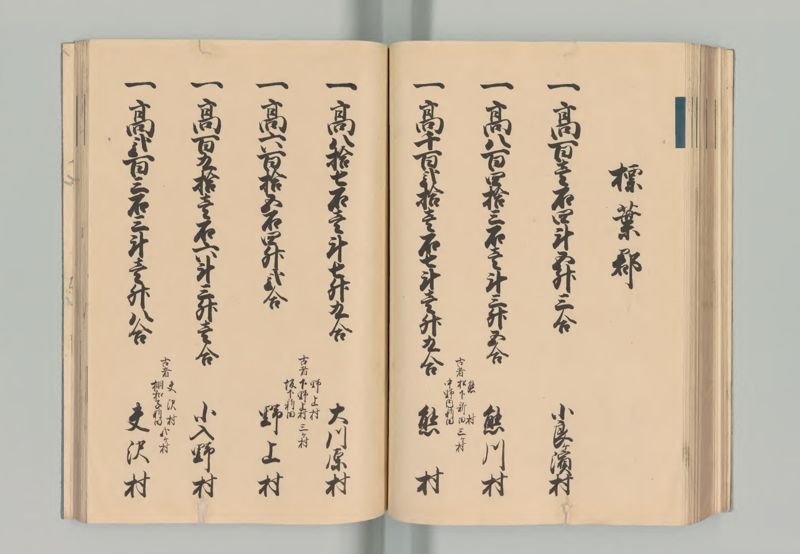 標葉郡
一高百壱石四斗五升三合
小良ヶ濱村
一高八百四拾三石壱斗三升五合
熊川村
一高千百弐拾壱石七斗壱升九合
古者
熊村
松下新田
中野内新田
三ヶ村
熊村
一高八拾七石壱斗七升九合
大川原村
一高六百拾五石四升弐合
古者
野上村
下野上村
坂下新田
三ヶ村
野上村
一高百九拾壱石六斗三升壱合
小入野村
一高弐百三石三斗壱升八合
古者
夫沢村
村
夫沢村